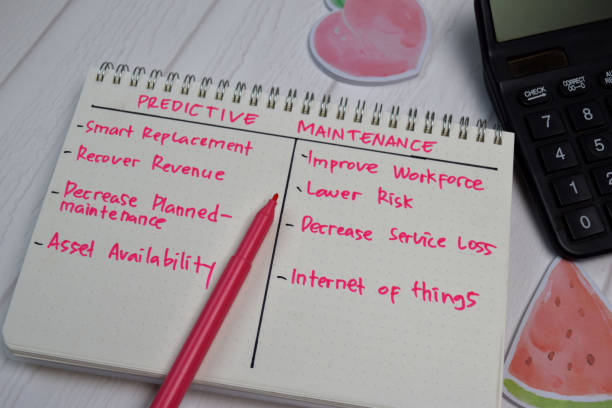 PREDICTIVE MAINTENANCE
- Smart Replacement
- Recover Revenue
- Decrease Planned-
maintenance
- Asset Availability
- Improve Workforce
- Lower Risk
- Decrease Service Loss
- Internet of things
CHECK CORRECT
7
4
1
0